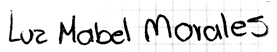 Luz Mabel Morales